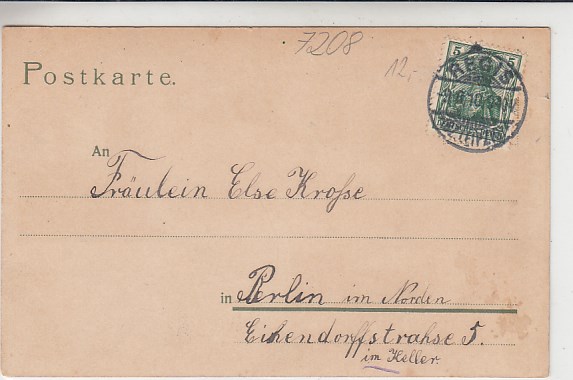 7208
12,-
Postkarte.
5 5
REGIS
An
Fräulein Else Krosse
in Berlin im Norden
Eihendorffstrahse 5.
im Keller.